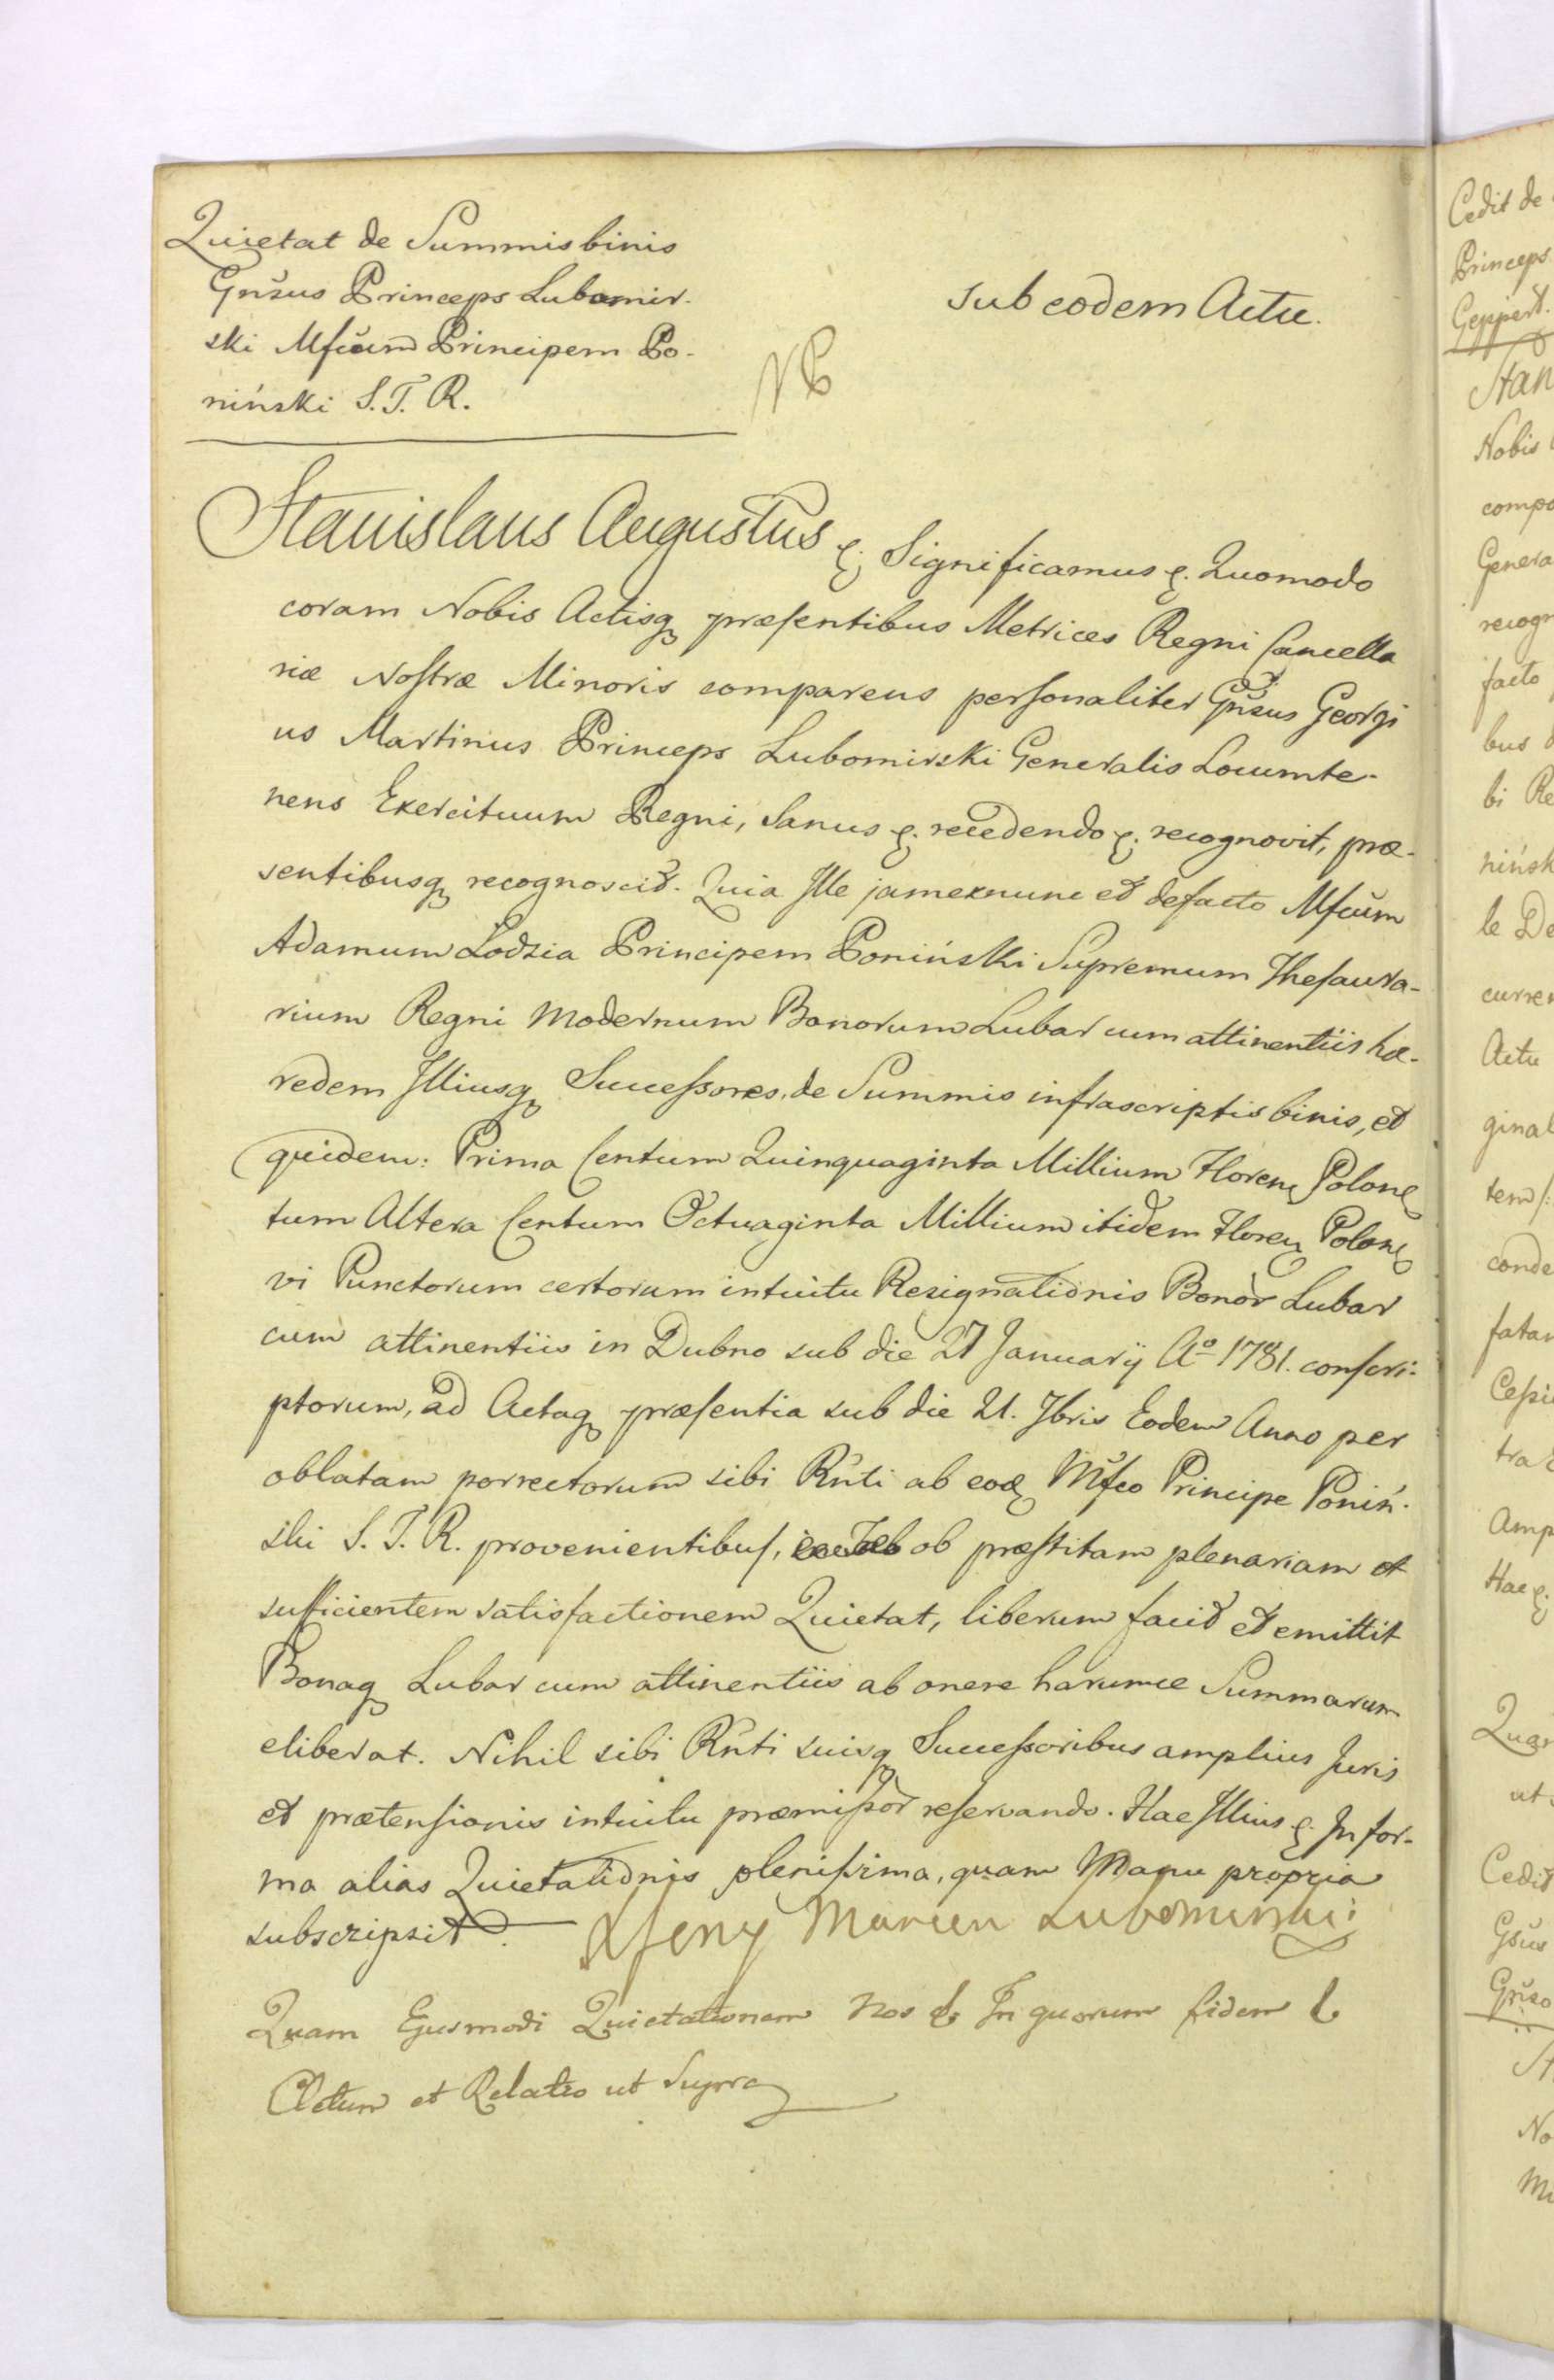 Quietat de Summis binis
Gnsus Princeps Lubomir-
ski Mfcum Principem Po-
niński S. T. R.
sub eodem Actu.
NB
Stanislaus Augustus &. Significamus &. Quomodo
coram Nobis Actisq præsentibus Metrices Regni Cancella
riæ Nostræ Minoris comparens personaliter Gnsus Georgi
us Martinus Princeps Lubomirski Generalis Locumte-
nens Exercituum Regni, Sanus &. recedendo &. recognovit, præ-
sentibusq recognoscit. Quia Ille jamexnunc et defacto Mfcum
Adamum Lodzia Principem Poniński Supremum Thesaura-
rium Regni Modernum Bonorum Lubar cum attinentiis hæ-
redem Illiusq Successores, de Summis infrascriptis binis, et
quidem: Prima Centum Quinquaginta Millium Floren Polon
tum Altera Centum Octuaginta Millium itidem Floren Polon
vi Punctorum certorum intuitu Resignationis Bonor Lubar
cum attinentiis in Dubno sub die 27 Januarij Aº 1781. conscri-
ptorum, ad Actaq præsentia sub die 21. 7bris Eodem Anno per
oblatam porrectorum sibi Rnti ab eod Mfco Principe Poniń-
ski S. T. R. provenientibus, ob præstitam plenariam et
sufficientem satisfactionem Quietat, liberum facit et emittit
Bonaq Lubar cum attinentiis ab onere harumce Summarum
eliberat. Nihil sibi Rnti suisq Successoribus amplius Juris
et prætensionis intuitu præmissor reservando. Hac Illius &. In for-
ma alias Quietationis plenissima, quam Manu propria
subscripsit.
Xże Jerzy Marcin Lubomirski
Quam Ejusmodi Quietationem Nos & In quorum fidem &
Actum et Relatio ut Supra